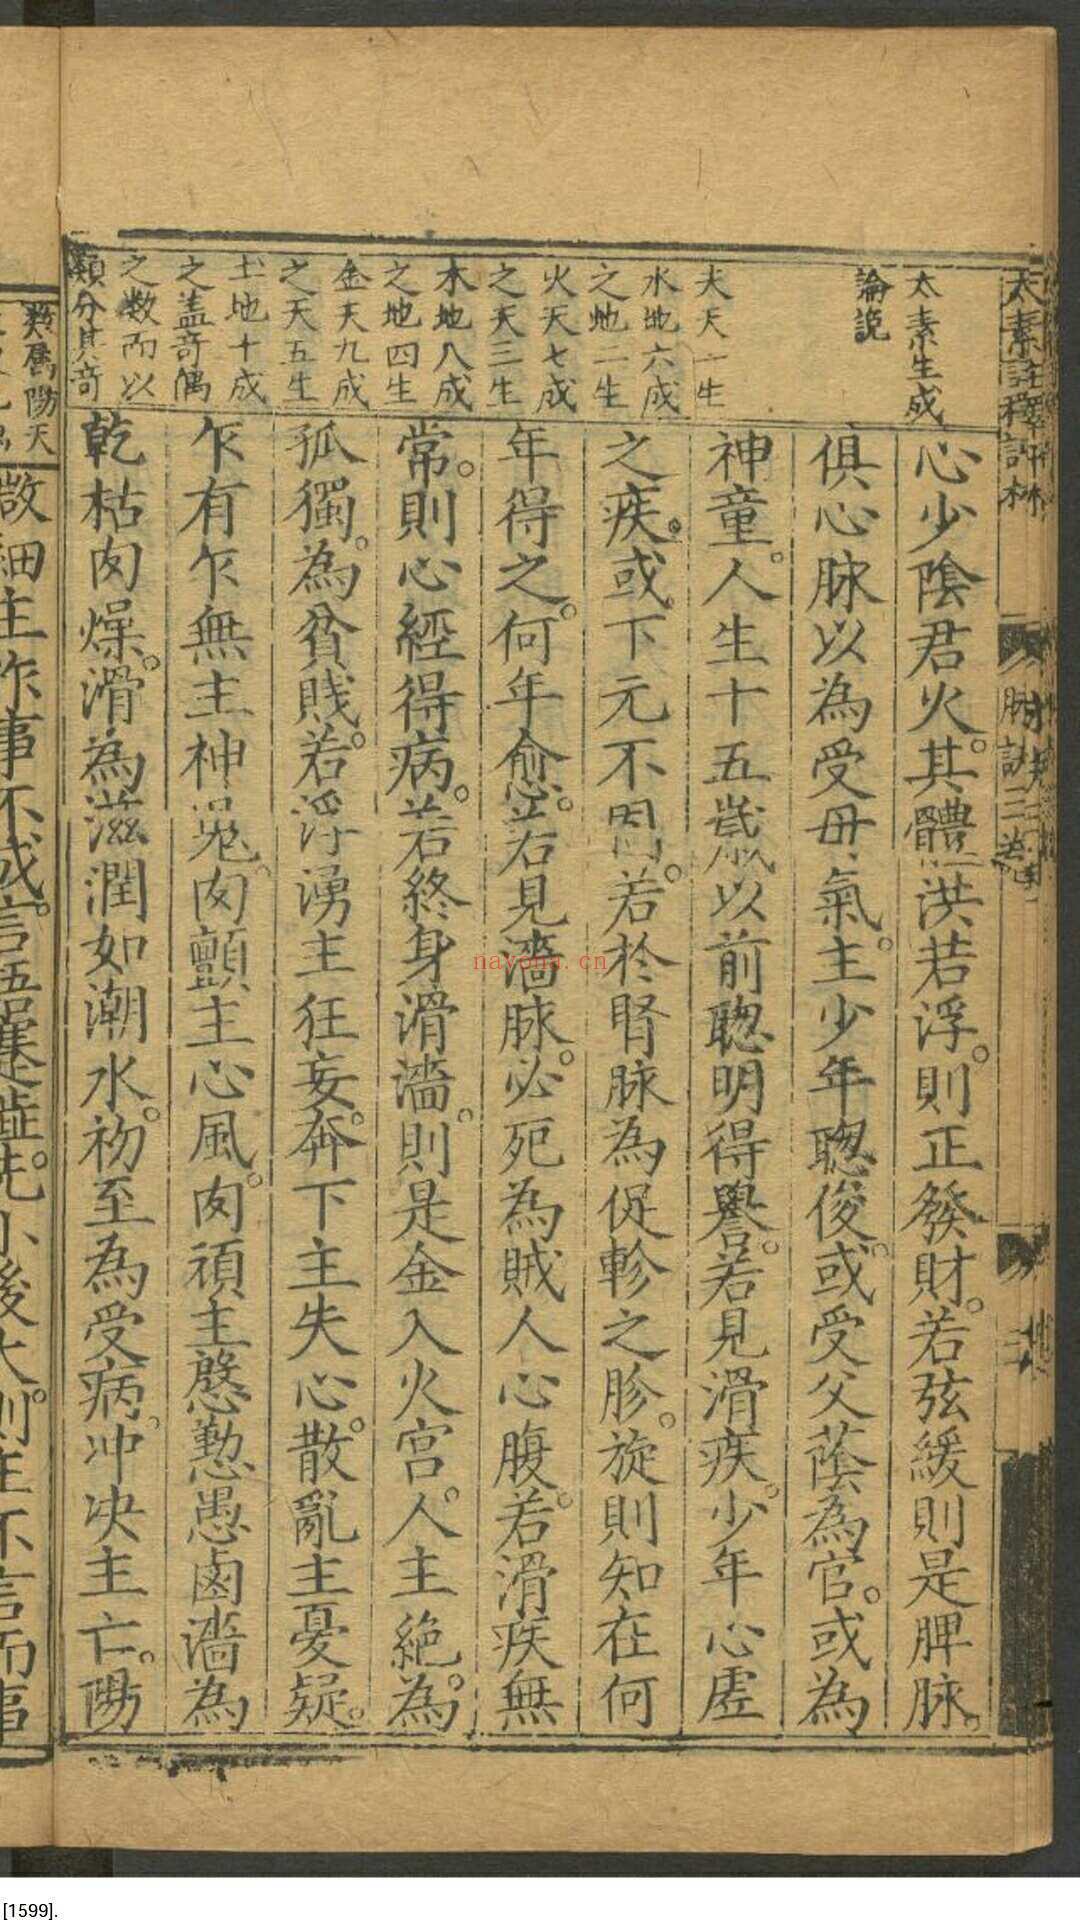 太素生成
論說
夫天一生
水地六成
之地二生
火天七成
之天三生
木地八成
之地四生
金天九成
之天五生
土地十成
之盖奇偶
之数而以
類分其奇
心少陰君火其體洪若浮則正發財若弦緩則是脾脉
俱心脉以為受母氣主少年聰俊或受父蔭為官或為
神童人生十五歲以前聰明得譽若見滑疾少年心虛
之疾或下元不固若於腎脉為促軫之胗旋則知在何
年得之何年愈若見濇脉必死為賊人心腹若滑疾無
常則心經得病若終身滑濇則是金入火宮人主絕為
孤獨為貧賤若浮湧主狂妄奔下主失心散亂主憂疑
乍有乍無主神鬼肉顫主心風肉頑主慇懃愚鹵濇為
乾枯肉燥滑為滋潤如潮水初至為受病冲决主亡陽
数属陽天
細主作事不成言語蹇澁先小後大則主不言而事
nayona.cn
[1599].